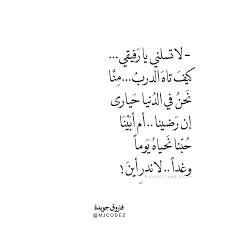 - لا تسلني يا رفيقي...
كيفَ تاهَ الدربُ...مِنَّا
نَحنُ في الدُنيا حَيارى
إن رَضينا .. أم أبَيْنَا
حُبّنا نَحياهُ يَوماً
وغداً .. لا ندرِ أينَ !
فاروق جويدة
@MJCODEZ